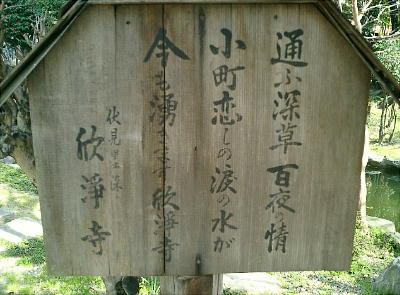 通ふ深草百夜の情
小町恋しの涙の水が
今も湧きます欣浄寺
伏見
欣浄寺